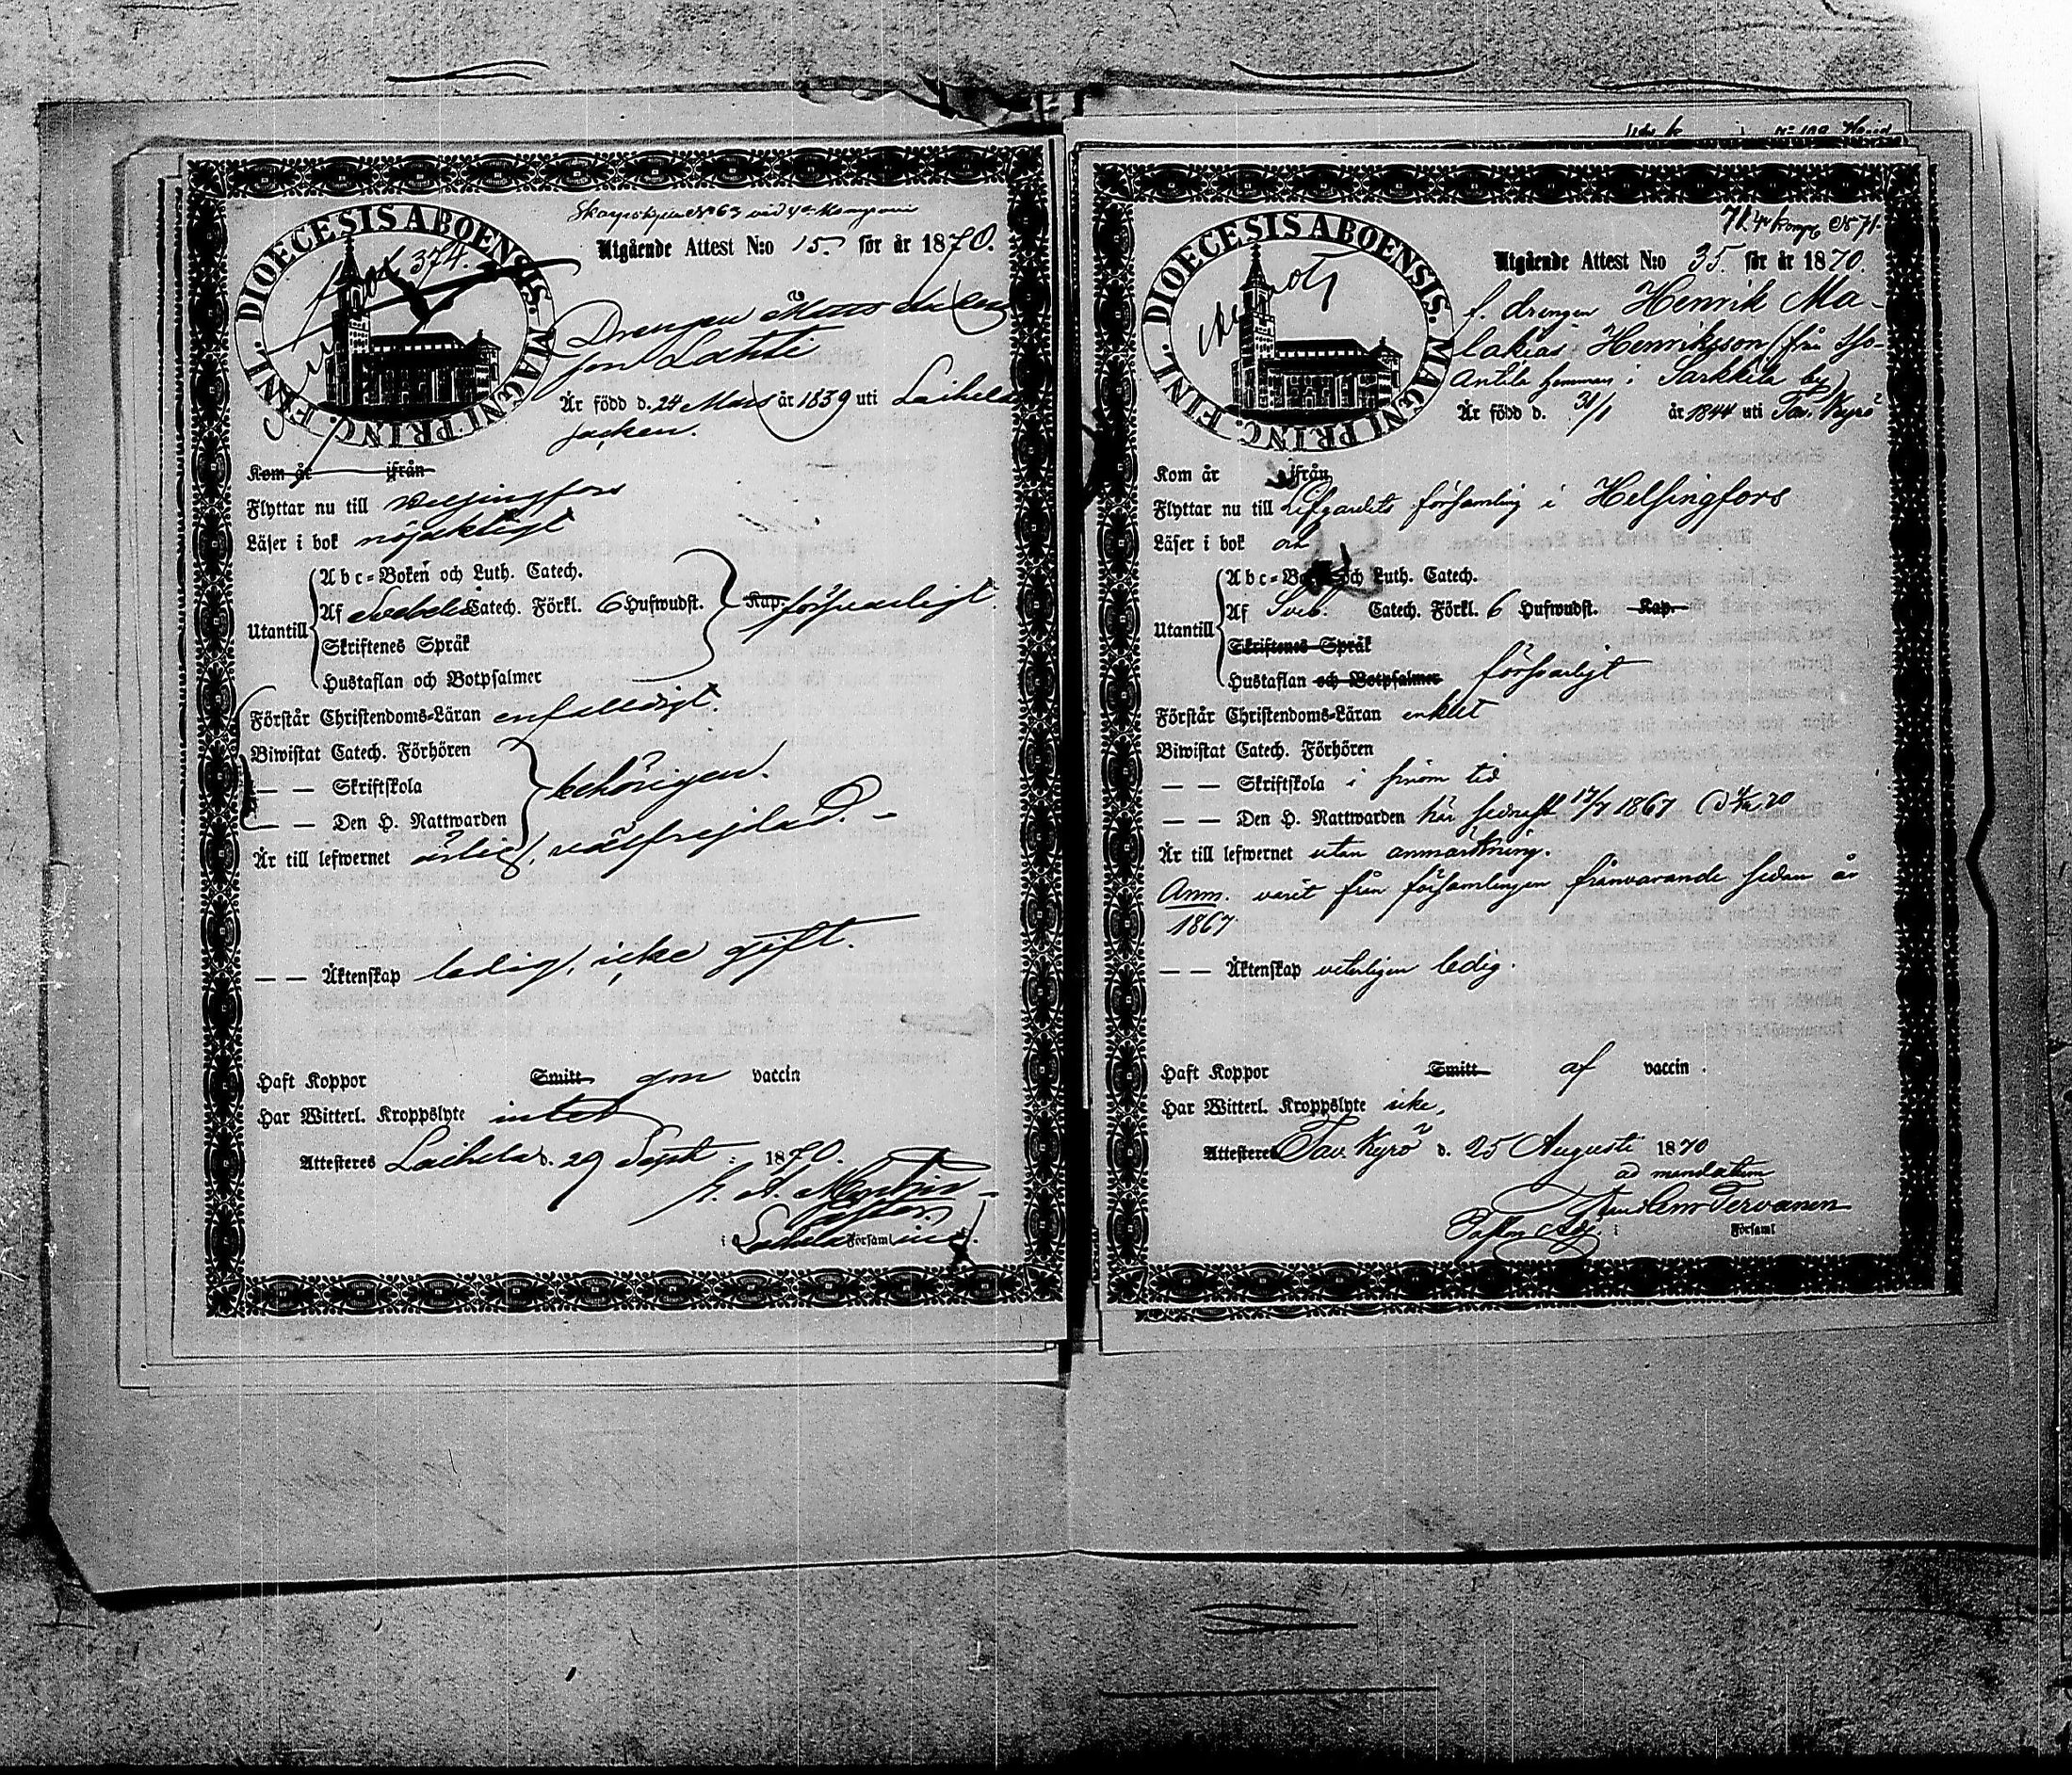 Skarpskytten N:o 63 vid 4:de Kompanie
DIOECESIS ABOENSIS. MAGNI PRINC. FINL.
fol 374.
Utgående Attest N:o 15 för år 1870.
Drengen Mats
son Lahti
Är född d. 24 Mars år 1839 uti Laihela
socken.
Kom år ifrån
Flyttar nu till Helsingfors
Läser i bok nöjaktigt
Abc-Boken och Luth. Catech.
Utantill Af Svebelii Catech. Förkl. 6 Hufwudst. Kap. försvarligt.
Skriftenes Språk
Hustaflan och Botpsalmer
Förstår Christendoms-Läran enfalldigt.
Biwistat Catech. Förhören
— — Skriftskola behörigen.
— — Den H. Nattwarden
Är till lefwernet ärlig, välfrejdad. -
— — Äktenskap ledig, icke gift.
Haft Koppor Smitt gm vaccin
Har Witterl. Kroppslyte intet
Attesteres Laihela d. 29 Sept. 1870.
i Laihela Församling.
4de komp. N 71.
DIOECESIS ABOENSIS. MAGNI PRINC. FINL.
Utgående Attest N:o 35. för år 1870.
f. drengen Henrik Ma-
lakias Henriksson (från Iso-
Antila hemman i Sarkkila by)
Är född d. 31/1 år 1844 uti Tav. Kyrö
Kom år ifrån
Flyttar nu till Lifgardets församling i Helsingfors
Läser i bok
Abc-Boken och Luth. Catech.
Utantill Af Sveb. Catech. Förkl. 6 Hufwudst. Kap.
Skriftenes Språk
Hustaflan och Botpsalmer försvarligt
Förstår Christendoms-Läran enkelt
Biwistat Catech. Förhören
— — Skriftskola i sinom tid
— — Den H. Nattwarden här sednast 17/7 1867
Är till lefwernet utan anmärkning.
Anm. varit från församlingen frånvarande sedan år
1867
— — Äktenskap veterligen ledig.
Haft Koppor Smitt af vaccin.
Har Witterl. Kroppslyte icke,
Attesteres Tav. Kyrö d. 25 Augusti 1870
ad mandatum
Tervonen
Pastors Adj. i Församl